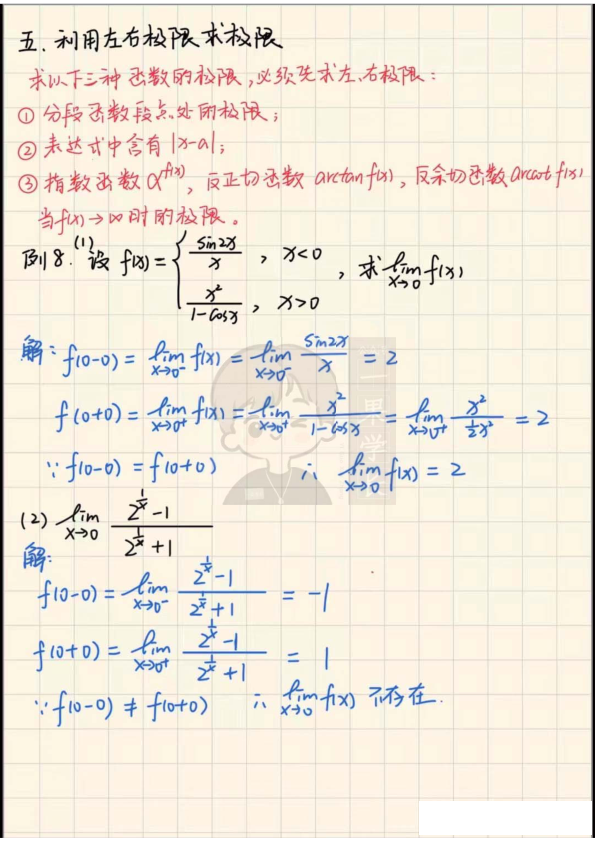 五、利用左右极限求极限
求以下三种函数的极限,必须先求左、右极限:
① 分段函数段点处的极限;
② 表达式中含有|x-a|;
③ 指数函数 a^{f(x)}, 反正切函数 arctan f(x), 反余切函数 arccot f(x)
当f(x)→∞时的极限。
例8.(1)设 f(x)={ \frac{sin2x}{x}, x<0 ; \frac{x^2}{1-cosx}, x>0 , 求 \lim_{x→0} f(x)
解: f(0-0) = \lim_{x→0^-} f(x) = \lim_{x→0^-} \frac{sin2x}{x} = 2
f(0+0) = \lim_{x→0^+} f(x) = \lim_{x→0^+} \frac{x^2}{1-cosx} = \lim_{x→0^+} \frac{x^2}{\frac{1}{2}x^2} = 2
∵ f(0-0) = f(0+0) ∴ \lim_{x→0} f(x) = 2
(2) \lim_{x→0} \frac{2^{\frac{1}{x}}-1}{2^{\frac{1}{x}}+1}
解:
f(0-0) = \lim_{x→0^-} \frac{2^{\frac{1}{x}}-1}{2^{\frac{1}{x}}+1} = -1
f(0+0) = \lim_{x→0^+} \frac{2^{\frac{1}{x}}-1}{2^{\frac{1}{x}}+1} = 1
∵ f(0-0) ≠ f(0+0) ∴ \lim_{x→0} f(x) 不存在.